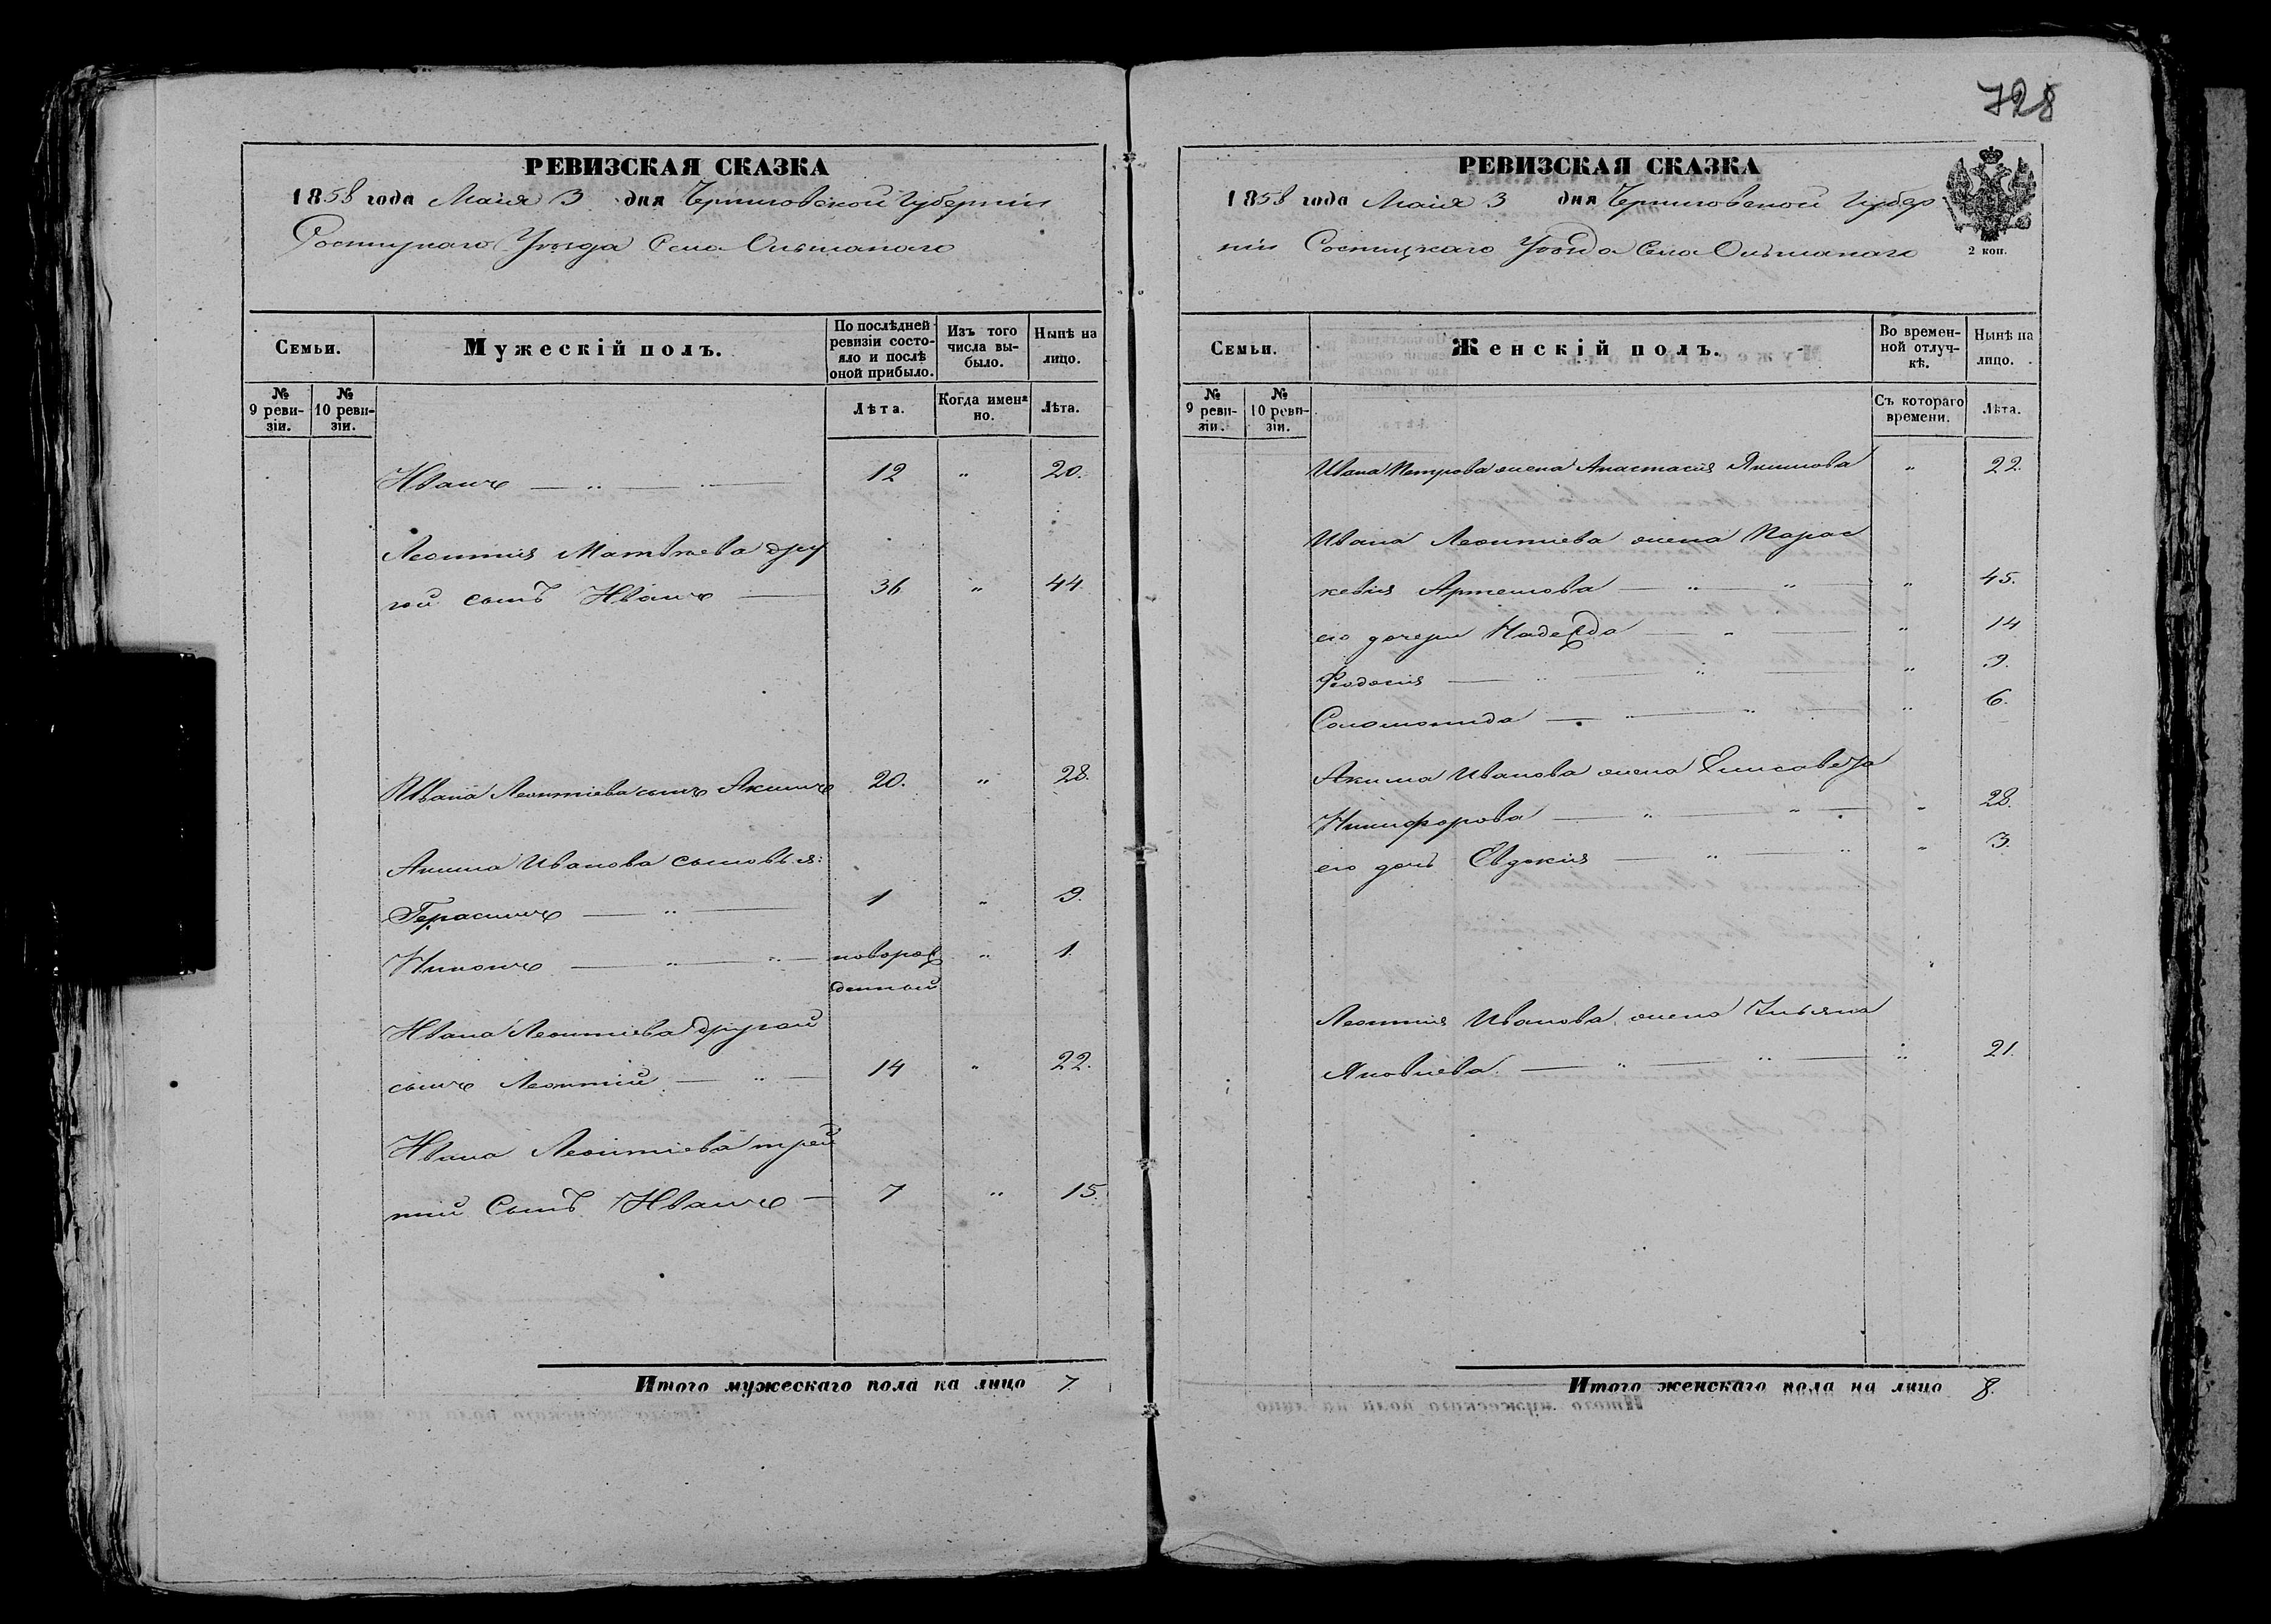 728
РЕВИЗСКАЯ СКАЗКА
1858 года Маія 3 дня Черниговской Губерніи
Сосницкаго Уѣзда Села Ольшанаго
Семьи.
Мужескій полъ.
По послѣдней ревизіи состояло и послѣ оной прибыло.
Изъ того числа выбыло.
Нынѣ на лицо.
№ 9 ревизіи.
№ 10 ревизіи.
Лѣта.
Когда именно.
Лѣта.
Иванъ — „ — 12 „ 20.
Леонтия Матвѣева дру
гой сынъ Иванъ — 36 „ 44.
Ивана Леонтіева сынъ Акимъ 20. „ 28.
Акима Иванова сыновья:
Герасимъ — „ — 1 „ 9.
Никонъ — „ — „ — новорож „ 1.
денный
Ивана Леонтіева другой
сынъ Леонтий — „ — 14 „ 22.
Ивана Леонтіева трей
тий Сынъ Иванъ — 7 „ 15.
Итого мужескаго пола на лицо 7.
РЕВИЗСКАЯ СКАЗКА
1858 года Маія 3 дня Черниговской Губер
ніи Сосницкаго Уѣзда Села Ольшанаго
2 коп.
Семьи.
Женскій полъ.
Во временной отлучкѣ.
Нынѣ на лицо.
№ 9 ревизіи.
№ 10 ревизіи.
Съ котораго времени.
Лѣта.
Ивана Петрова жена Анастасия Якимова „ 22.
Ивана Леонтиева жена Парас
кевия Артемова — „ — „ — „ 45.
его дочери Надежда — „ — „ 14
Феодосия — „ — „ — „ 9.
Соломонида — „ — „ — „ 6.
Акима Иванова жена Елисавета
Никифорова — „ — „ — „ 28.
его дочь Евдокия — „ — „ „ 3.
Леонтия Иванова жена Ульяна
Яковлева — „ — „ — „ 21.
Итого женскаго пола на лицо 8.